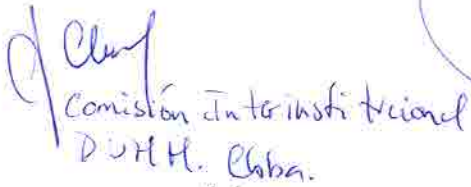 Comisión Interinstitucional
DDHH. Cba.